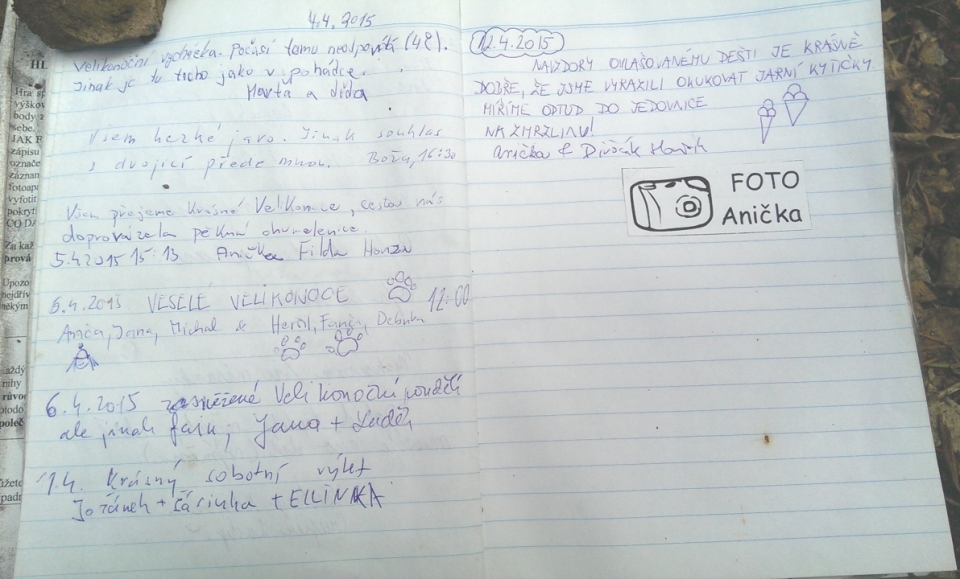 4.4.2015
Velikonoční vycházka. Počasí tomu neodpovídá
Jinak je tu ticho jako v pohádce.
Marta a děda
Všem hezké jaro. Jinak souhlas
s dvojicí přede mnou. Boža, 16:30
Všem přejeme krásné Velikonoce, cestou nás
doprovázela pěkná
5.4.2015 15:13 Anička Filda Honza
5.4.2015 VESELÉ VELIKONOCE 12:00
Anča, Jana, Michal &
6.4.2015 zasněžené Velikonoční pondělí
ale jinak fajn, Jana + Luděk
11.4. Krásný sobotní výlet
+ Šárinka + ELLINKA
12.4.2015
NAVZDORY OHLAŠOVANÉMU DEŠTI JE KRÁSNĚ
DOBŘE, ŽE JSME VYRAZILI OKUKOVAT JARNÍ KYTIČKY
MÍŘÍME ODTUD DO JEDOVNICE
NA ZMRZLINU!
Anička & Divočák
FOTO
Anička
HL
Hra
výškov
body z
sebe.
JAK F
zápisu
označe
záznam
fotoapa
vyfotit
pokryt
CO DĚ
Za kaž
prová
Upozo
nejdřív
někým
každý
nihy
růvo
otodo
poleč
ůžeto